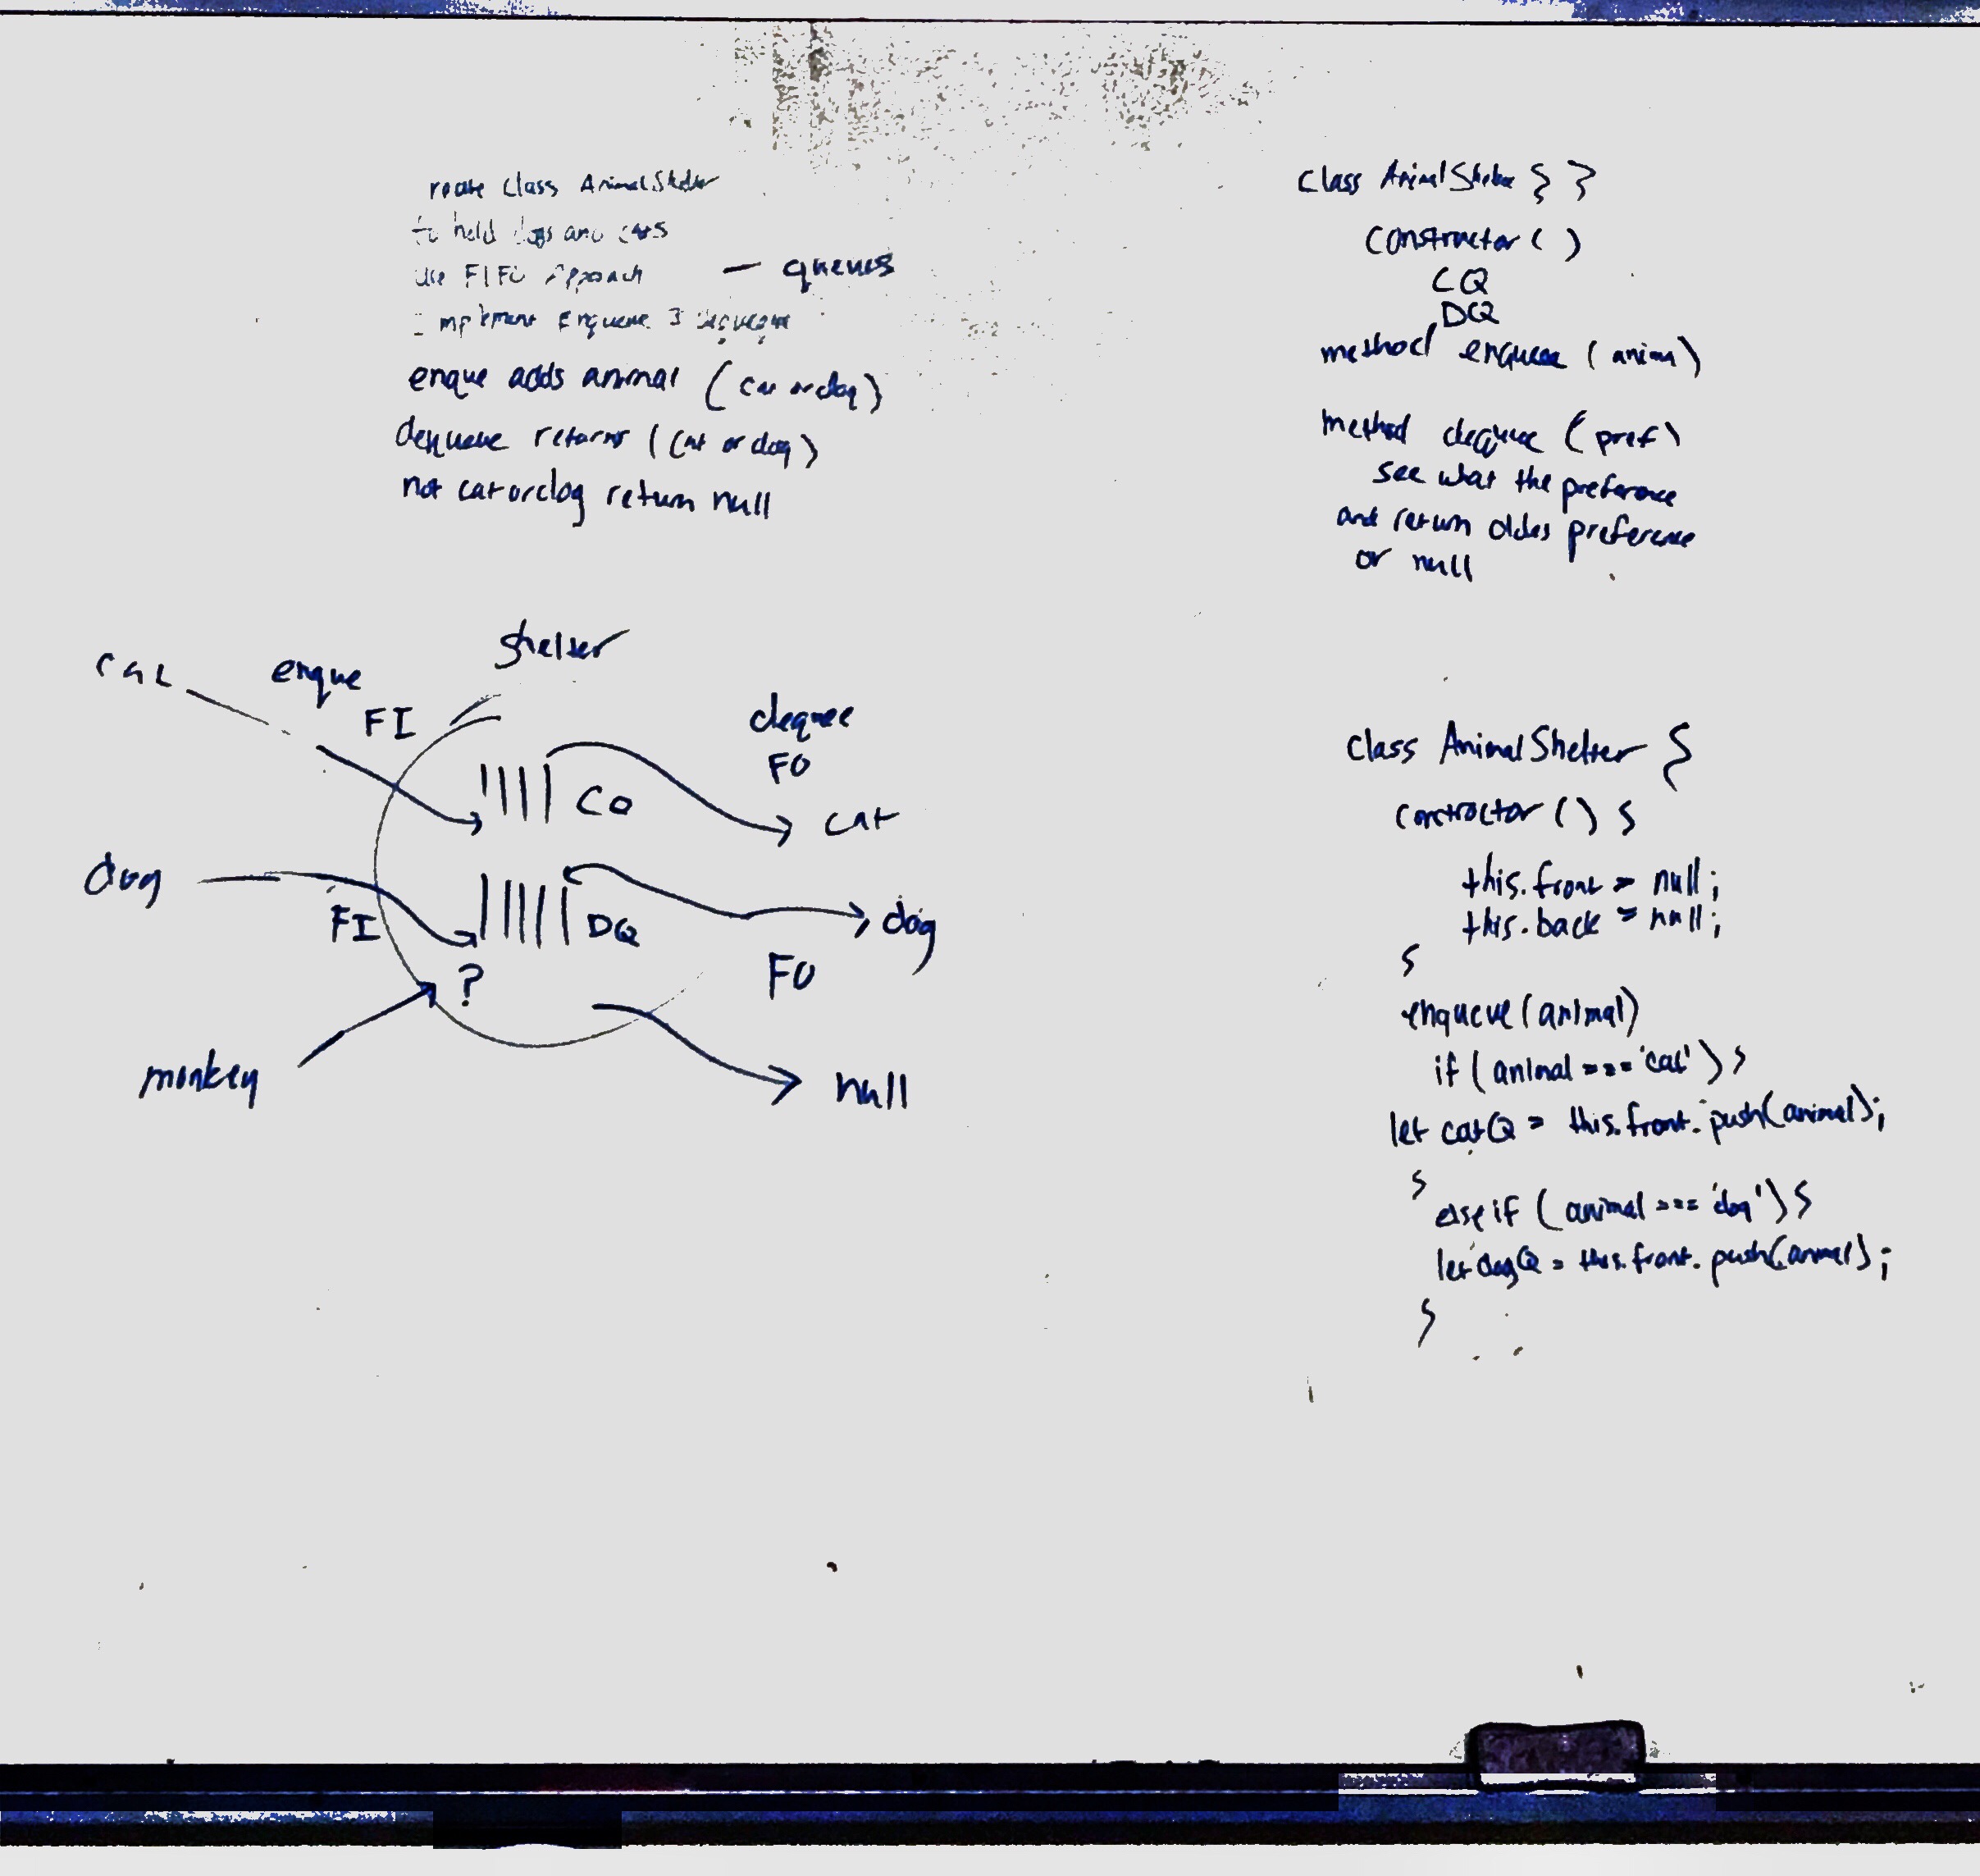 reate Class AnimalShelter
to hold dogs and cats
use FIFO Approach — queues
Implement Enqueue 3 dequeue
enque adds animal (cat or dog)
dequeue returns (cat or dog)
not cat or dog return null
Class AnimalShelter { }
constructor ( )
CQ
DQ
method enqueue (anima)
method dequeue (pref)
see what the preference
and return oldes preference
or null
shelter
cat
enque
FI
deque
FO
CQ
cat
dog
FI
DQ
dog
?
FO
monkey
null
class AnimalShelter {
contractor () {
this.front = null;
this.back = null;
}
enqueue(animal)
if (animal === 'cat') {
let catQ = this.front.push(animal);
}
else if (animal === 'dog') {
let dogQ = this.front.push(animal);
}